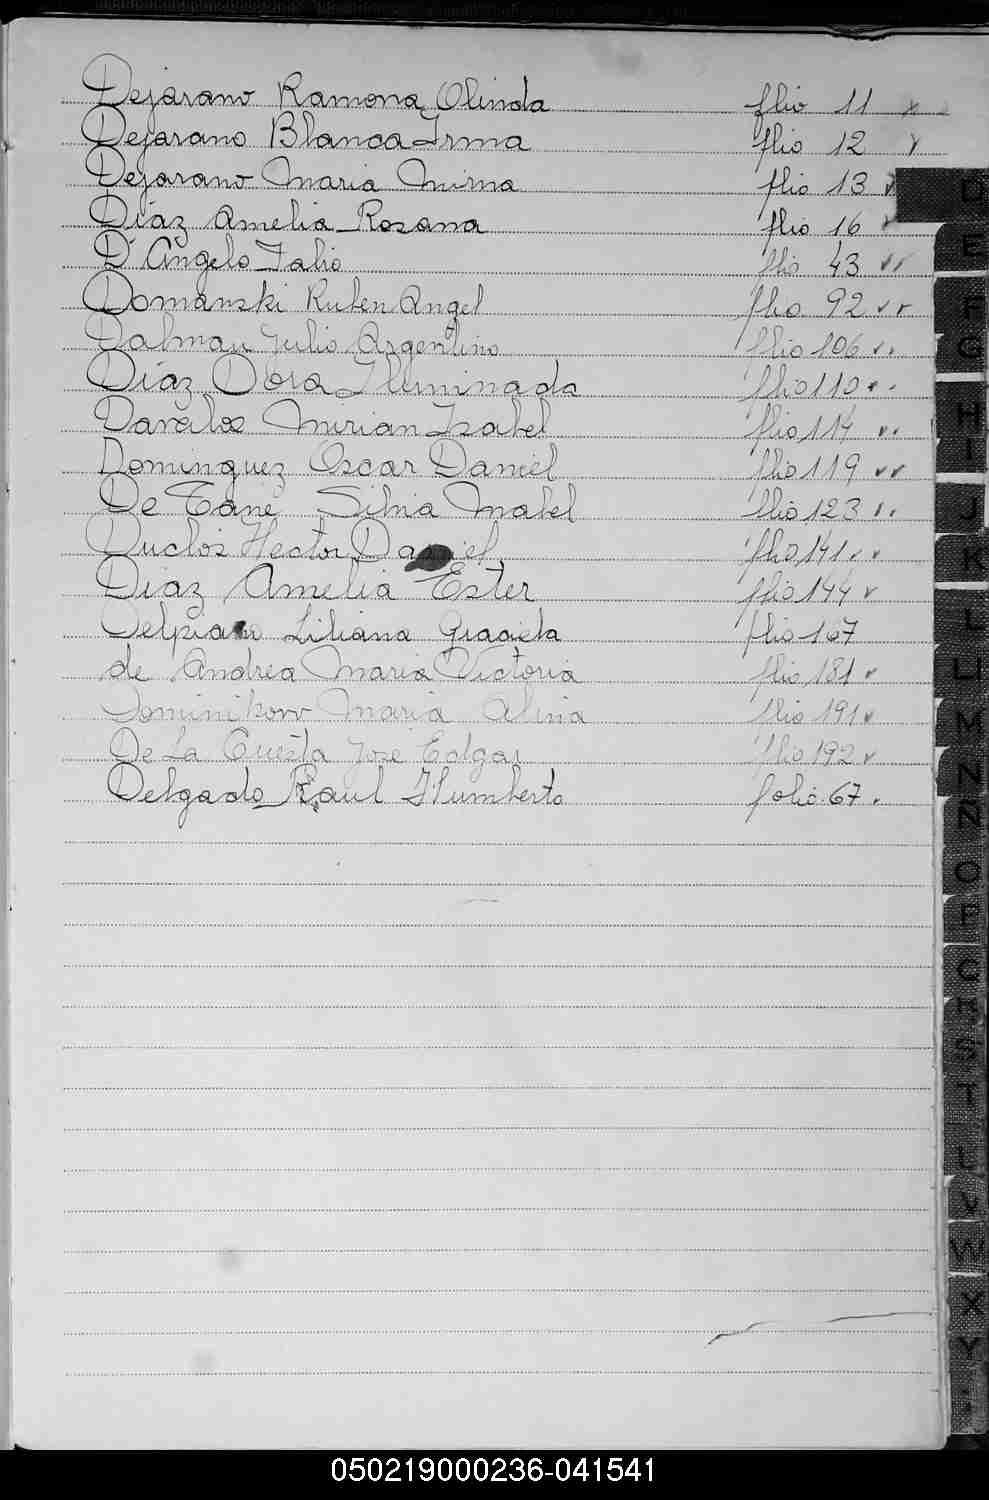 Dejarano Ramona Olinda flio 11
Dejarano Blanca Irma flio 12
Dejarano Maria Mirna flio 13
Diaz Amelia Rosana flio 16
D'Angelo Fabio flio 43
Domanski Ruben Angel flio 92
Dalmau Julio Argentino flio 106
Diaz Dora Iluminada flio 110
Davalos Mirian Isabel flio 114
Dominguez Oscar Daniel flio 119
De Tane Silvia Mabel flio 123
Duclos Hector Daniel flio 141
Diaz Amelia Ester flio 144
Delpiano Liliana Graciela flio 167
de Andrea Maria Victoria flio 181
Dominikow Maria Alina flio 191
De La Cuesta José Edgar flio 192
Delgado Raul Humberto folio 67.
D
E
F
G
H
I
J
K
L
LL
M
N
Ñ
O
P
R
S
T
V
W
X
Y
050219000236-041541